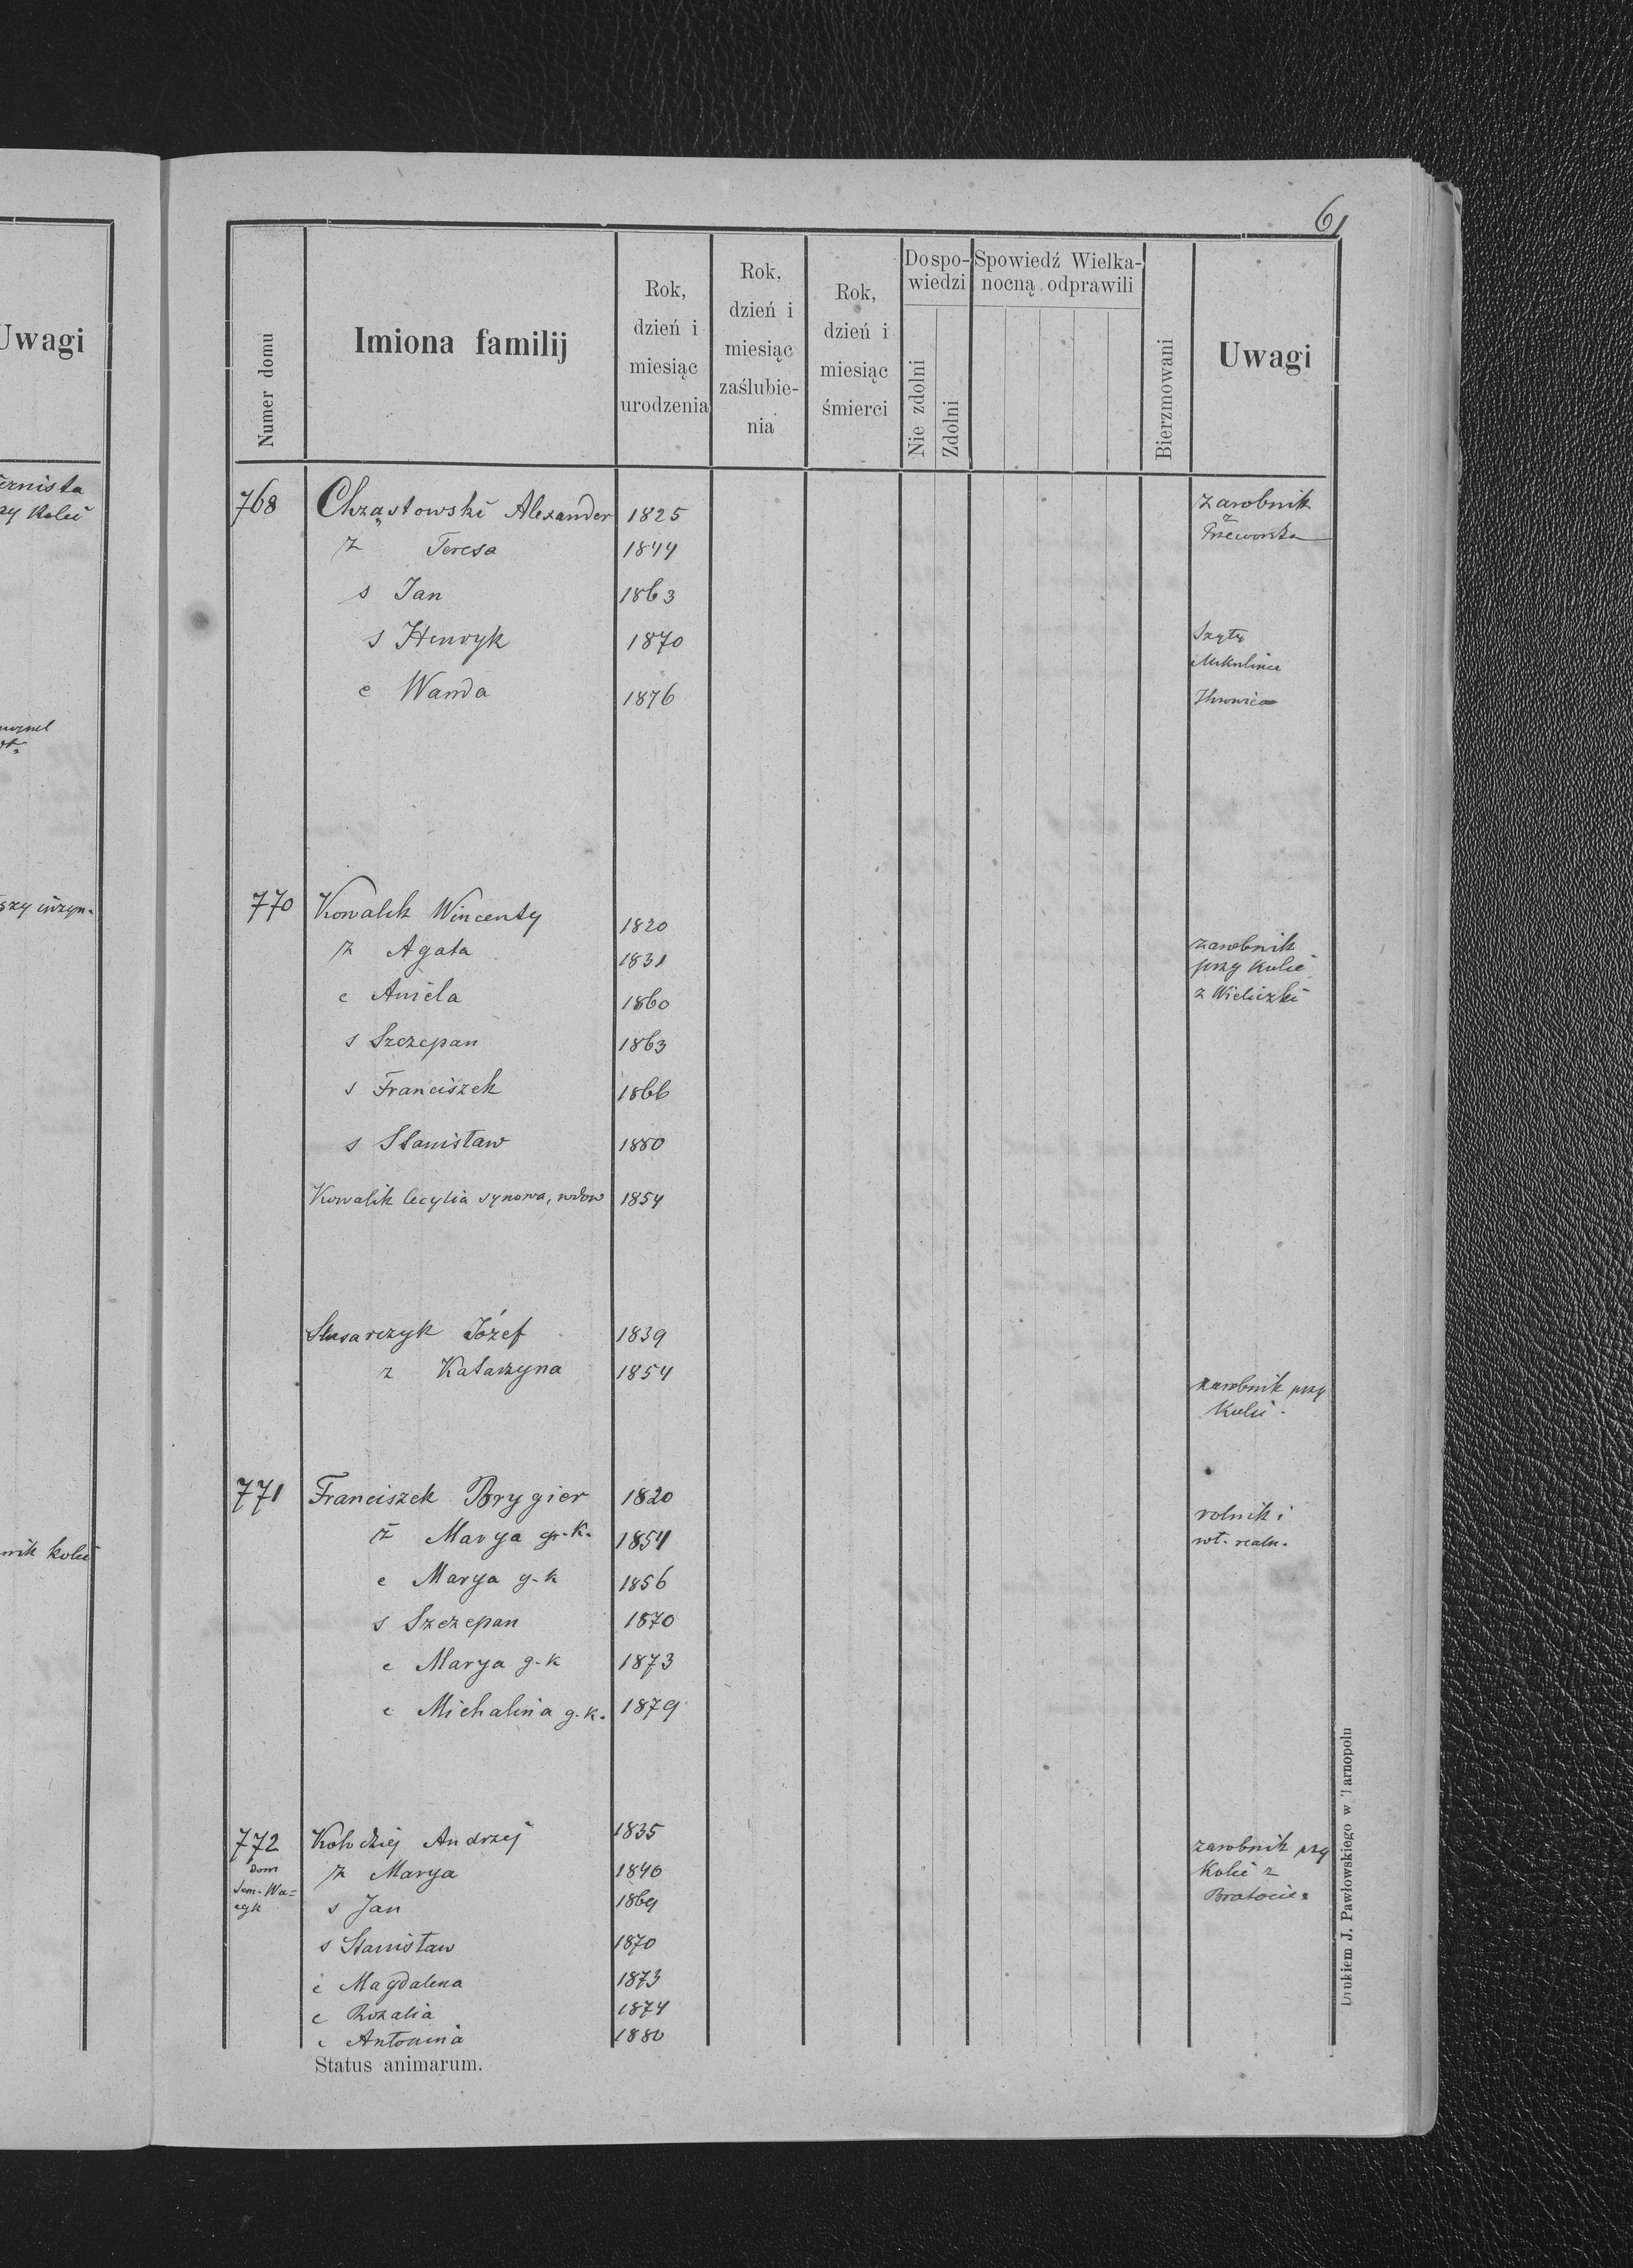 Uwagi
61
Numer domu
Imiona familij
Rok, dzień i miesiąc urodzenia
Rok, dzień i miesiąc zaślubienia
Rok, dzień i miesiąc śmierci
Do spowiedzi
Nie zdolni
Zdolni
Spowiedź Wielkanocną odprawili
Bierzmowani
Uwagi
768 Chrząstowski Alexander 1825 zarobnik
ż Teresa 1844 z Przeworska
s Jan 1863
s Henryk 1870
Mikulince
c Wanda 1876
770 Kowalik Wincenty 1820
ż Agata 1831 zarobnik
przy kolei
c Aniela 1860 z Wieliczki
s Szczepan 1863
s Franciszek 1866
s Stanisław 1880
Kowalik Cecylia synowa, wdow 1854
Slusarczyk Józef 1839
ż Katarzyna 1854
zarobnik przy
Kolei
771 Franciszek Brygier 1820
rolnik i
ż Marya gr. k. 1854 wł. realn.
c Marya g. k 1856
s Szczepan 1870
c Marya g. k 1873
c Michalina g. k. 1879
772 Kołodziej Andrzej 1835 zarobnik przy
Dom ż Marya 1840 Kolei z
s Jan 1869
s Stanisław 1870
c Magdalena 1873
c Rozalia 1874
c Antonina 1880
Status animarum.
Drukiem J. Pawłowskiego w Tarnopolu